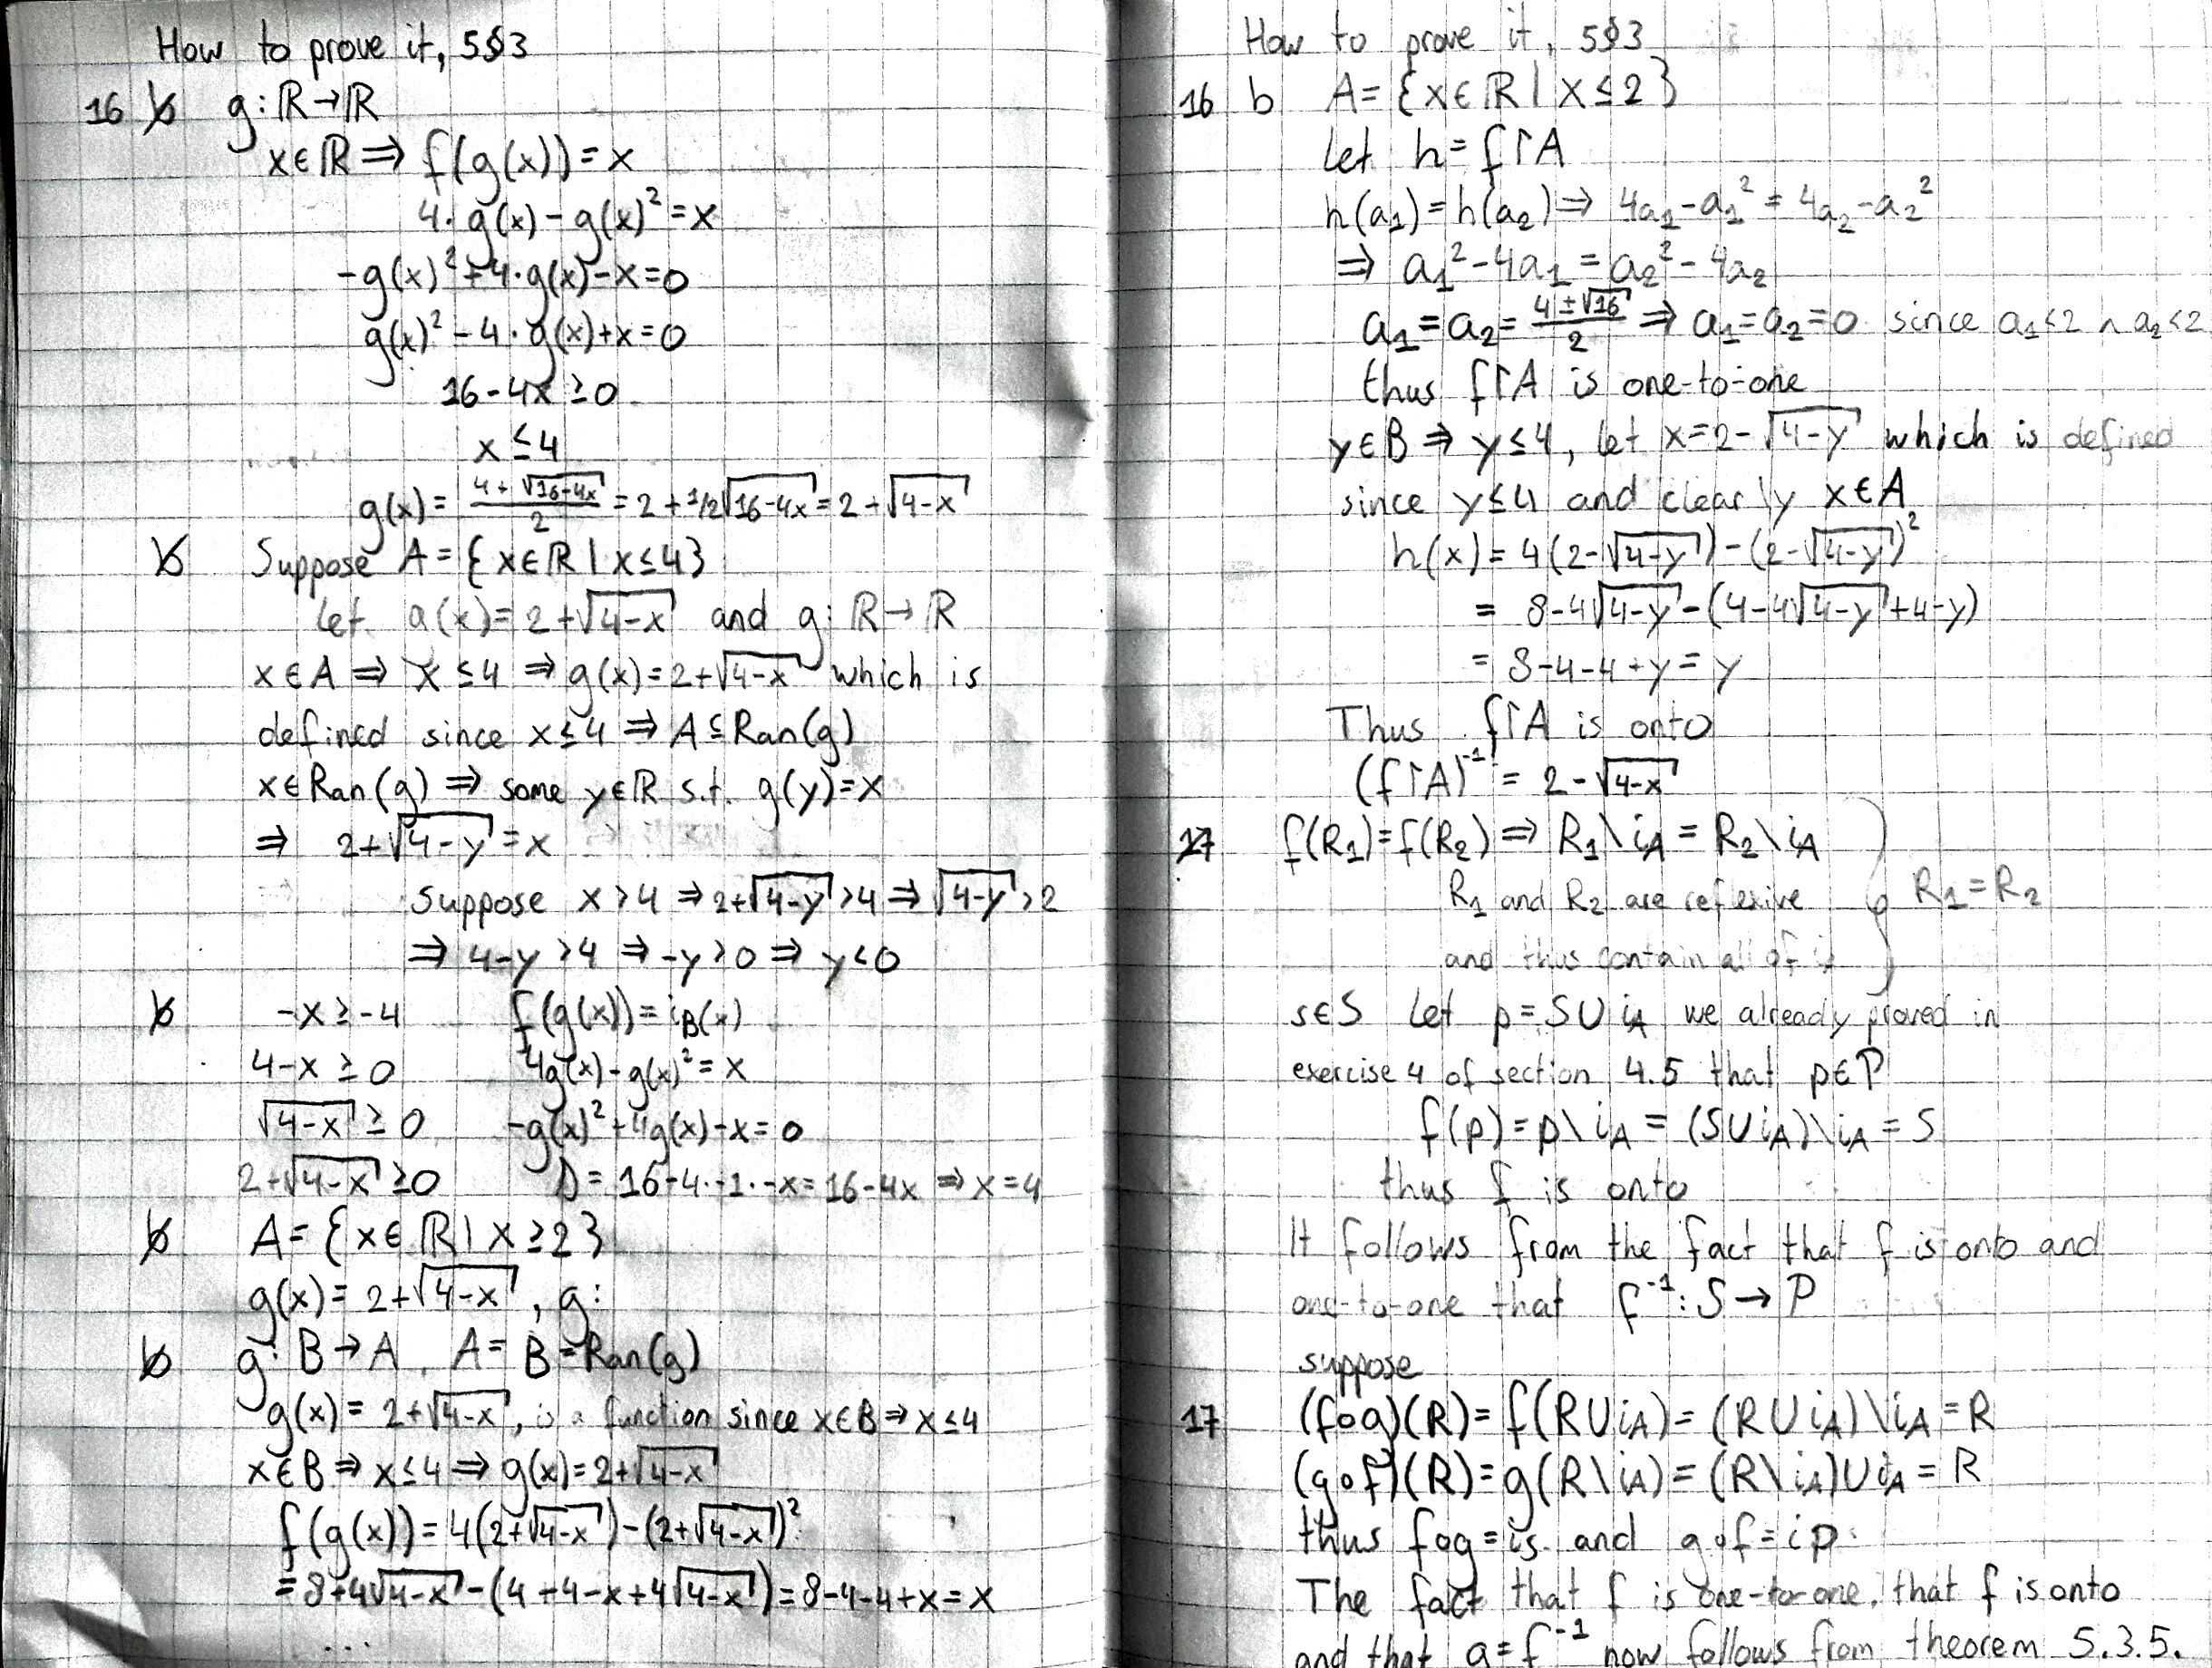 How to prove it, 5§3
16 b g: ℝ→ℝ
x∈ℝ ⇒ f(g(x)) = x
4·g(x) - g(x)² = x
-g(x)² + 4·g(x) - x = 0
g(x)² - 4·g(x) + x = 0
16-4x ≥ 0
x ≤ 4
g(x) = (4+√(16-4x))/2 = 2+1/2√(16-4x) = 2+√(4-x)
b Suppose A = {x∈ℝ | x≤4}
Let g(x) = 2+√(4-x) and g: ℝ→ℝ
x∈A ⇒ x≤4 ⇒ g(x) = 2+√(4-x) which is
defined since x≤4 ⇒ A⊆Ran(g)
x∈Ran(g) ⇒ some y∈ℝ s.t. g(y)=x
⇒ 2+√(4-y) = x
suppose x>4 ⇒ 2+√(4-y) >4 ⇒ √(4-y) >2
⇒ 4-y >4 ⇒ -y>0 ⇒ y<0
b -x ≥ -4 f(g(x)) = i_B(x)
4-x ≥ 0 4g(x)-g(x)² = x
√(4-x) ≥ 0 -g(x)²+4g(x)-x = 0
2+√(4-x) ≥0 D = 16-4·-1·-x = 16-4x ⇒ x=4
b A = {x∈ℝ | x≥2}
g(x) = 2+√(4-x), g:
b g: B→A, A= B=Ran(g)
g(x) = 2+√(4-x), is a function since x∈B ⇒ x≤4
x∈B ⇒ x≤4 ⇒ g(x) = 2+√(4-x)
f(g(x)) = 4(2+√(4-x)) - (2+√(4-x))²
= 8+4√(4-x) - (4+4-x+4√(4-x)) = 8-4-4+x = x
...
How to prove it, 5§3
16 b A = {x∈ℝ | x≤2}
Let h = f↾A
h(a₁) = h(a₂) ⇒ 4a₁-a₁² = 4a₂-a₂²
⇒ a₁²-4a₁ = a₂²-4a₂
a₁=a₂= (4±√16)/2 ⇒ a₁=a₂=0 since a₁<2 ∧ a₂<2
thus f↾A is one-to-one
y∈B ⇒ y≤4, let x=2-√(4-y) which is defined
since y≤4 and clearly x∈A
h(x) = 4(2-√(4-y)) - (2-√(4-y))²
= 8-4√(4-y) - (4-4√(4-y)+4-y)
= 8-4-4+y = y
Thus f↾A is onto
(f↾A)⁻¹ = 2-√(4-x)
17 f(R₁)=f(R₂) ⇒ R₁\i_A = R₂\i_A
R₁ and R₂ are reflexive } R₁=R₂
and thus contain all of i
s∈S Let p = S∪i_A we already proved in
exercise 4 of section 4.5 that p∈P
f(p) = p\i_A = (S∪i_A)\i_A = S
thus f is onto
It follows from the fact that f is onto and
one-to-one that f⁻¹: S→P
suppose
17 (f∘g)(R) = f(R∪i_A) = (R∪i_A)\i_A = R
(g∘f)(R) = g(R\i_A) = (R\i_A)∪i_A = R
thus f∘g = i_S and g∘f = i_P
The fact that f is one-to-one, that f is onto
and that g=f⁻¹ now follows from theorem 5.3.5.